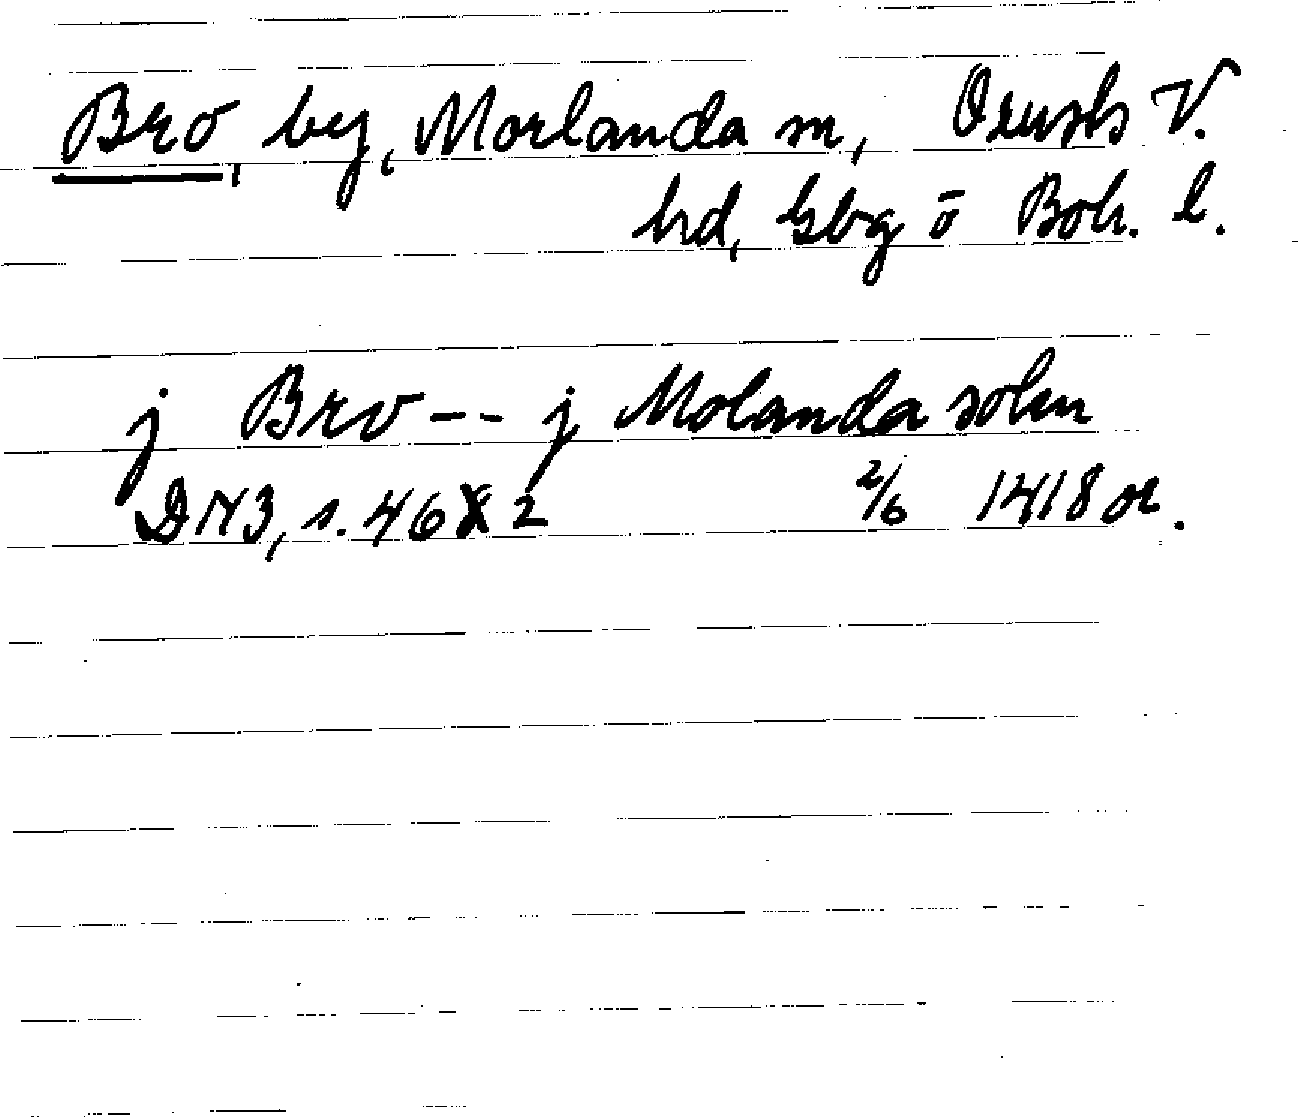 Bro, by, Morlanda sn, Orusts V.
hd, Gbg ō Boh. l.
j Bro -- j Molanda sokn
DN 3, s. 462 2/6 1418 or.